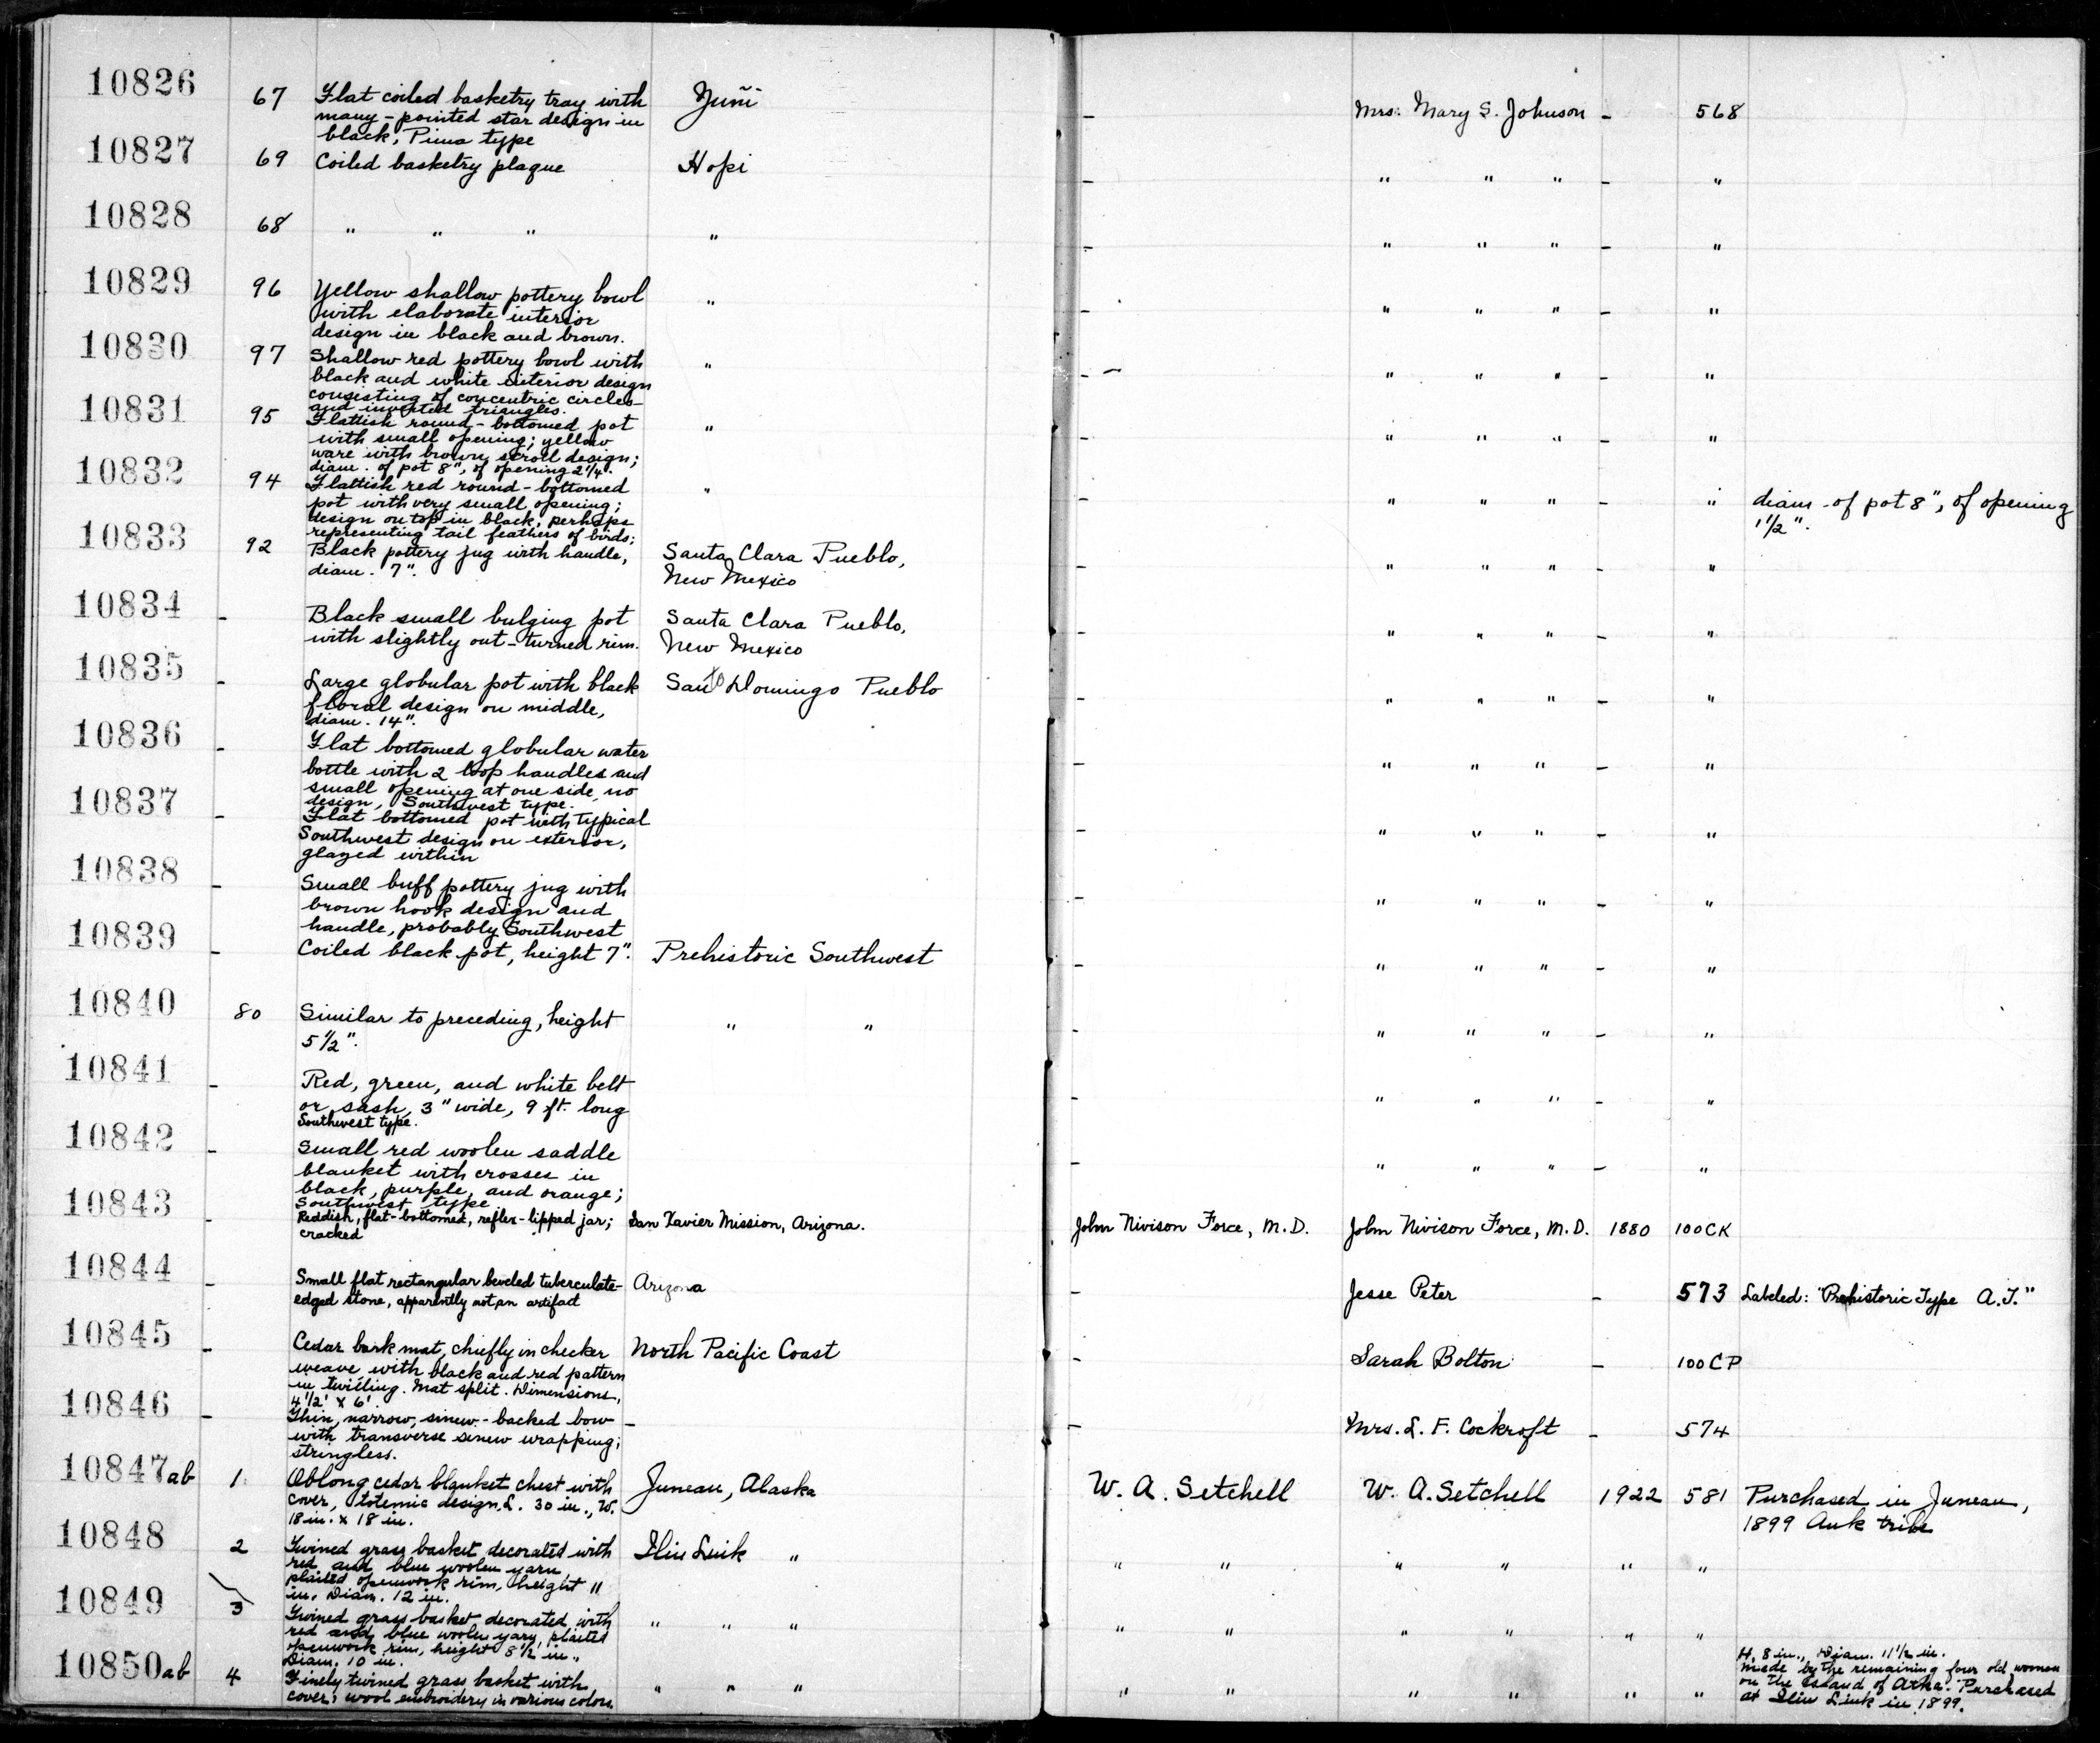 10826 67 Flat coiled basketry tray with Zuñi - Mrs. Mary S. Johnson - 568
many-pointed star design in
black, Pima type
10827 69 Coiled basketry plaque Hopi - " " " - "
10828 68 " " " " - " " " - "
10829 96 Yellow shallow pottery bowl " - " " " - "
with elaborate interior
design in black and brown.
10830 97 Shallow red pottery bowl with " - " " " - "
black and white interior design
consisting of concentric circles
and inverted triangles.
10831 95 Flattish round-bottomed pot " " " " - "
with small opening; yellow
ware with brown scroll design;
diam. of pot 8", of opening 2 1/4".
10832 94 Flattish red round-bottomed " - " " " - " diam. of pot 8", of opening
pot with very small opening; 1 1/2".
design on top in black, perhaps
representing tail feathers of birds;
10833 92 Black pottery jug with handle, Santa Clara Pueblo, - " " " - "
diam. 7". New Mexico
10834 - Black small bulging pot Santa Clara Pueblo, " " " - "
with slightly out-turned rim. New Mexico
10835 - Large globular pot with black Santo Domingo Pueblo - " " " - "
floral design on middle,
diam. 14".
10836 - Flat bottomed globular water - " " " - "
bottle with 2 loop handles and
small opening at one side, no
design, Southwest type.
10837 - Flat bottomed pot with typical - " " " - "
Southwest design on exterior,
glazed within
10838 - Small buff pottery jug with - " " " - "
brown hook design and
handle, probably Southwest
10839 - Coiled black pot, height 7". Prehistoric Southwest - " " " - "
10840 80 Similar to preceding, height " " - " " " - "
5 1/2".
10841 - Red, green, and white belt - " " " - "
or sash, 3" wide, 9 ft. long
Southwest type.
10842 - Small red woolen saddle - " " " - "
blanket with crosses in
black, purple, and orange;
Southwest type
10843 - Reddish, flat-bottomed, reflex-lipped jar; San Xavier Mission, Arizona. John Nivison Force, M.D. John Nivison Force, M.D. 1880 100CK
cracked
10844 - Small flat rectangular beveled tuberculate- Arizona - Jesse Peter - 573 Labeled: "Prehistoric Type A.T."
edged stone, apparently not an artifact
10845 - Cedar bark mat, chiefly in checker North Pacific Coast - Sarah Bolton - 100CP
weave with black and red pattern
in twilling. Mat split. Dimensions,
4 1/2' x 6'.
10846 - Thin, narrow, sinew-backed bow - - Mrs. L. F. Cockroft - 574
with transverse sinew wrapping;
stringless.
10847ab 1 Oblong cedar blanket chest with Juneau, Alaska W. A. Setchell W. A. Setchell 1922 581 Purchased in Juneau,
cover, totemic design. L. 30 in., W. 1899 Auk tribe
18 in. x 18 in.
10848 2 Twined grass basket decorated with Iliu Luik " " " " " " "
red and blue woolen yarn,
plaited openwork rim, height 11
in. Diam. 12 in.
10849 3 Twined grass basket decorated with " " " " " " " " "
red and blue woolen yarn, plaited
openwork rim, height 8 1/2 in.,
Diam. 10 in.
10850ab 4 Finely twined grass basket with " " " " " " " " " H. 8 in., Diam. 11 1/2 in.
cover, wool embroidery in various colors Made by the remaining four old women
on the Island of Atka. Purchased
at Iliu Liuk in 1899.